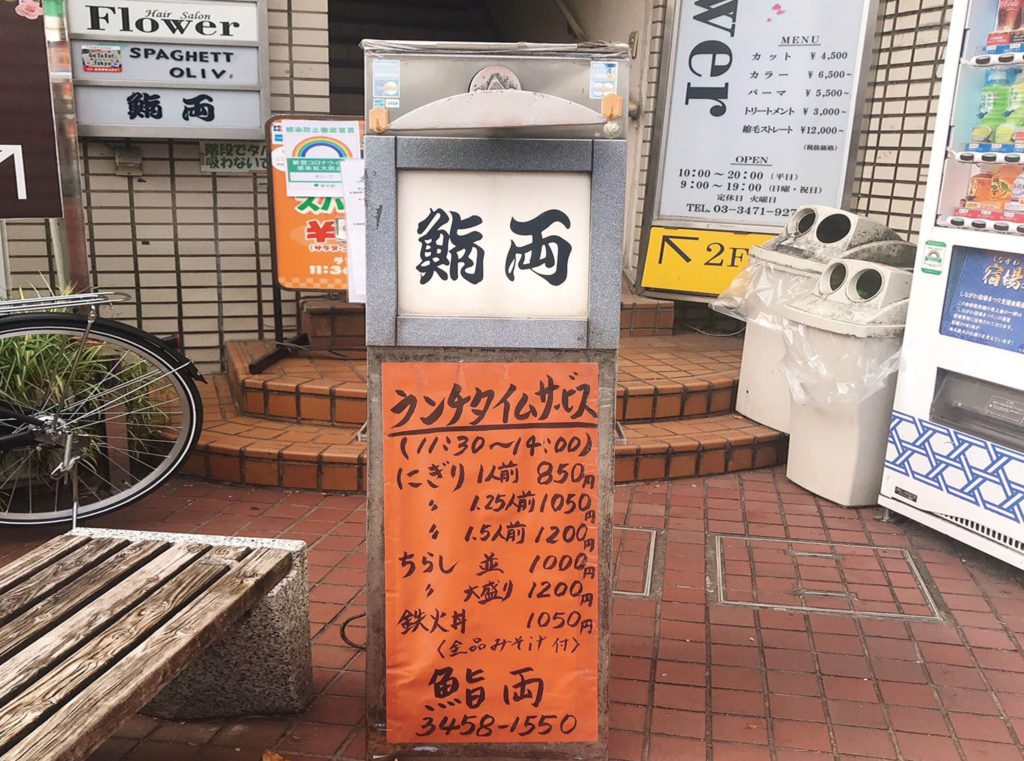 Hair Salon
Flower
SPAGHETT
OLIV
鮨 両
階段でタバ
吸わないで
感染防止徹底宣言
スパ
11:3
鮨両
ランチタイムサービス
(11:30〜14:00)
にぎり 1人前 850円
〃 1.25人前 1050円
〃 1.5人前 1200円
ちらし 並 1000円
〃 大盛り 1200円
鉄火丼 1050円
〈全品みそ汁付〉
鮨両
3458-1550
wer
MENU
カット ¥4,500
カラー ¥6,500~
パーマ ¥5,500~
トリートメント ¥3,000~
縮毛ストレート ¥12,000~
(税抜価格)
OPEN
10:00〜20:00 (平日)
9:00〜19:00 (日曜・祝日)
定休日 火曜日
TEL. 03-3471-927
2F
宿場